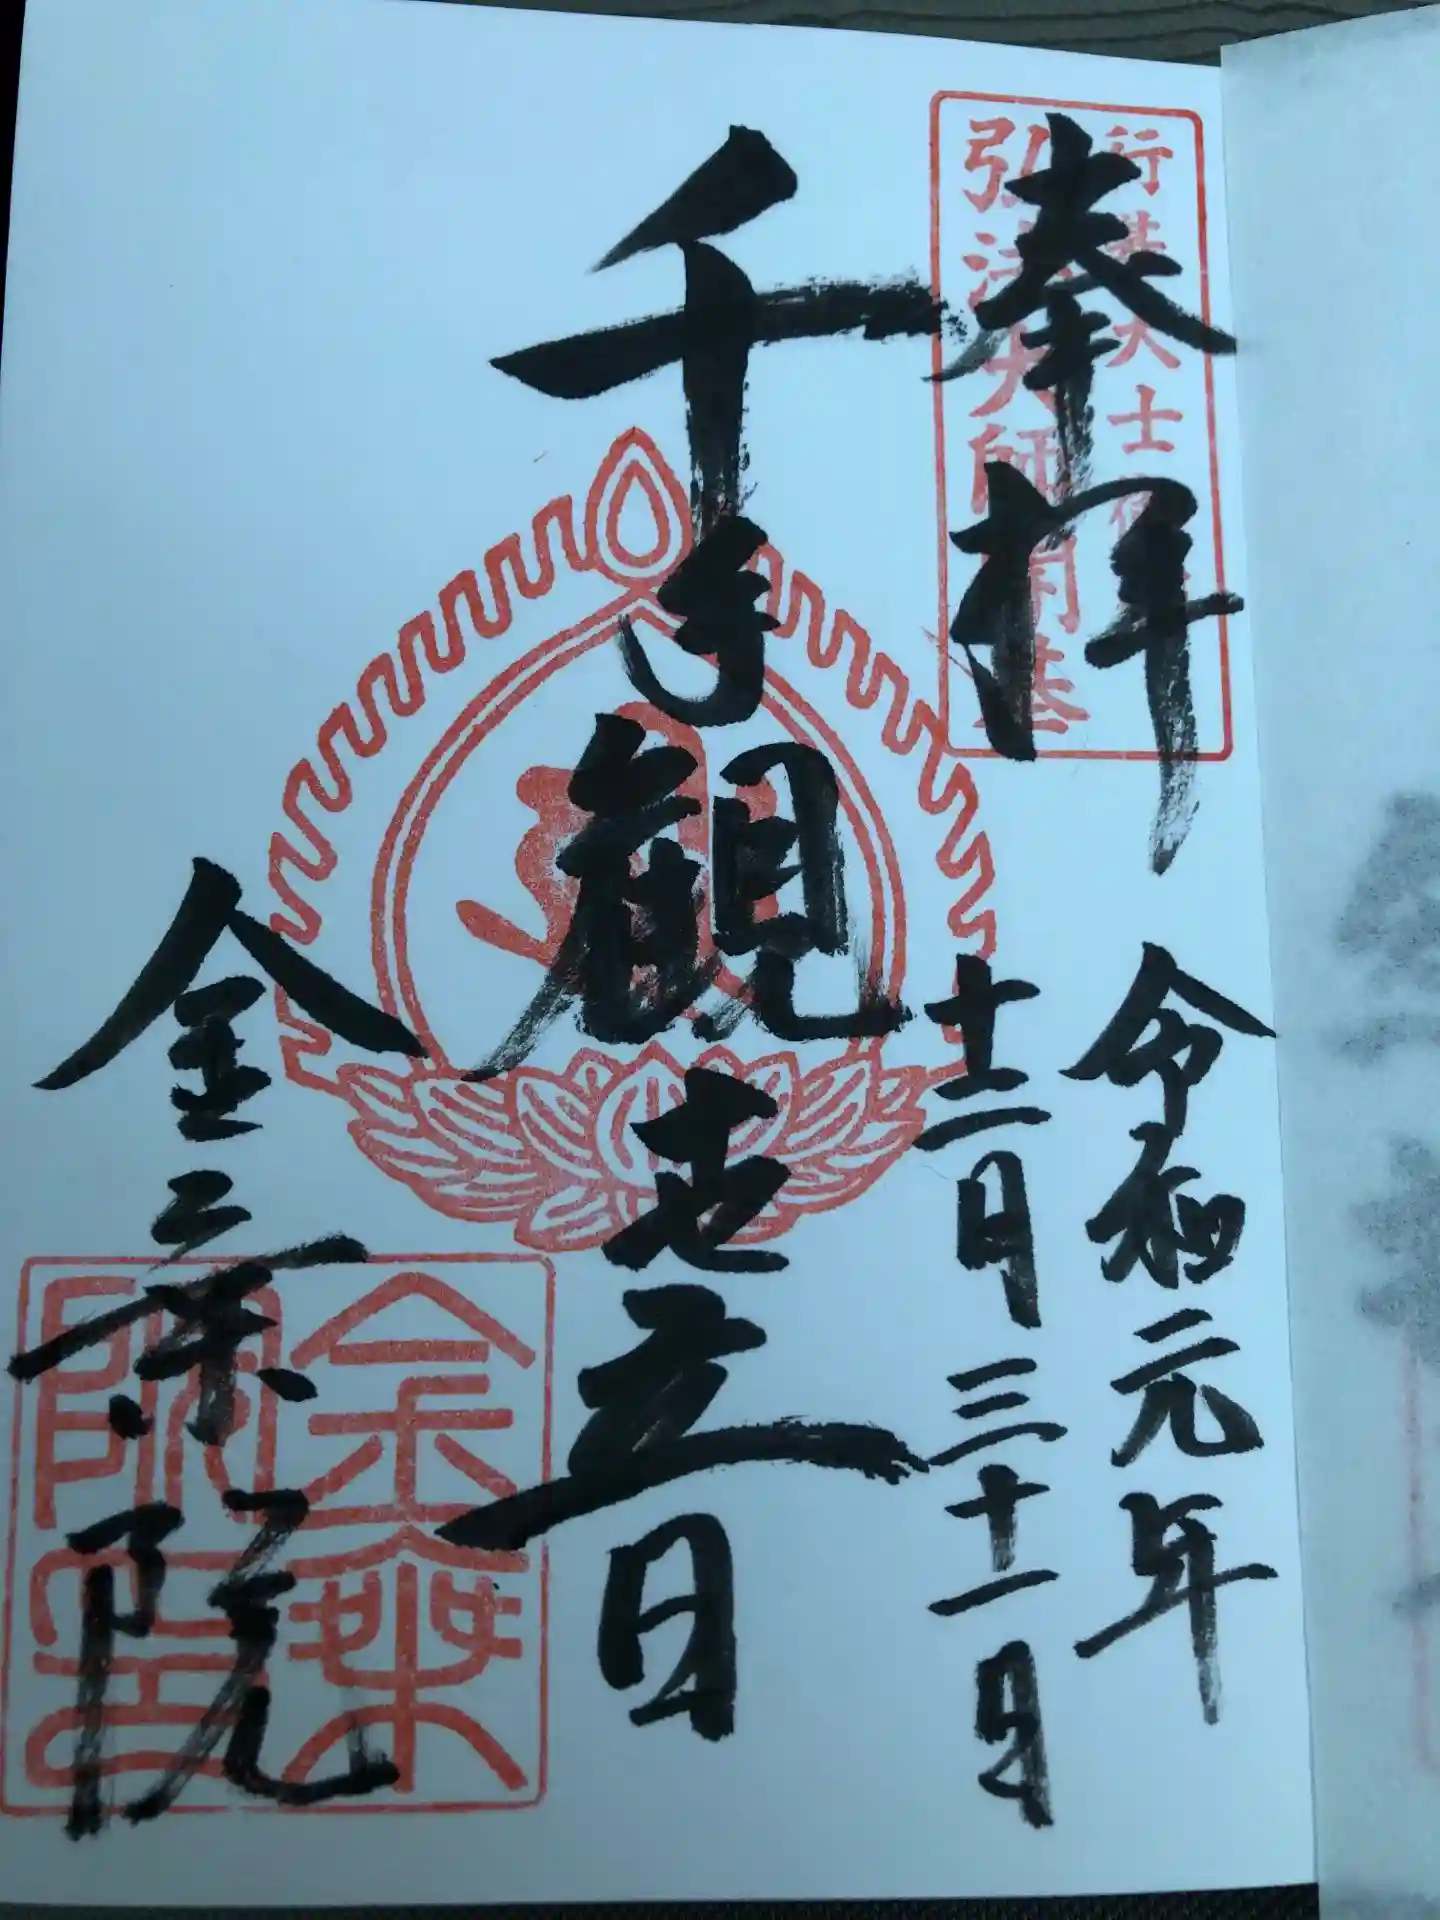 行基大士御
弘法大師開基
奉拝
令和元年
十二月三十一日
千手観世音
金乗院